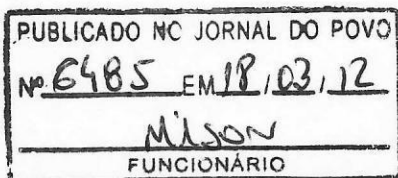 PUBLICADO NO JORNAL DO POVO
Nº 6485 EM 18, 03, 12
Milson
FUNCIONÁRIO